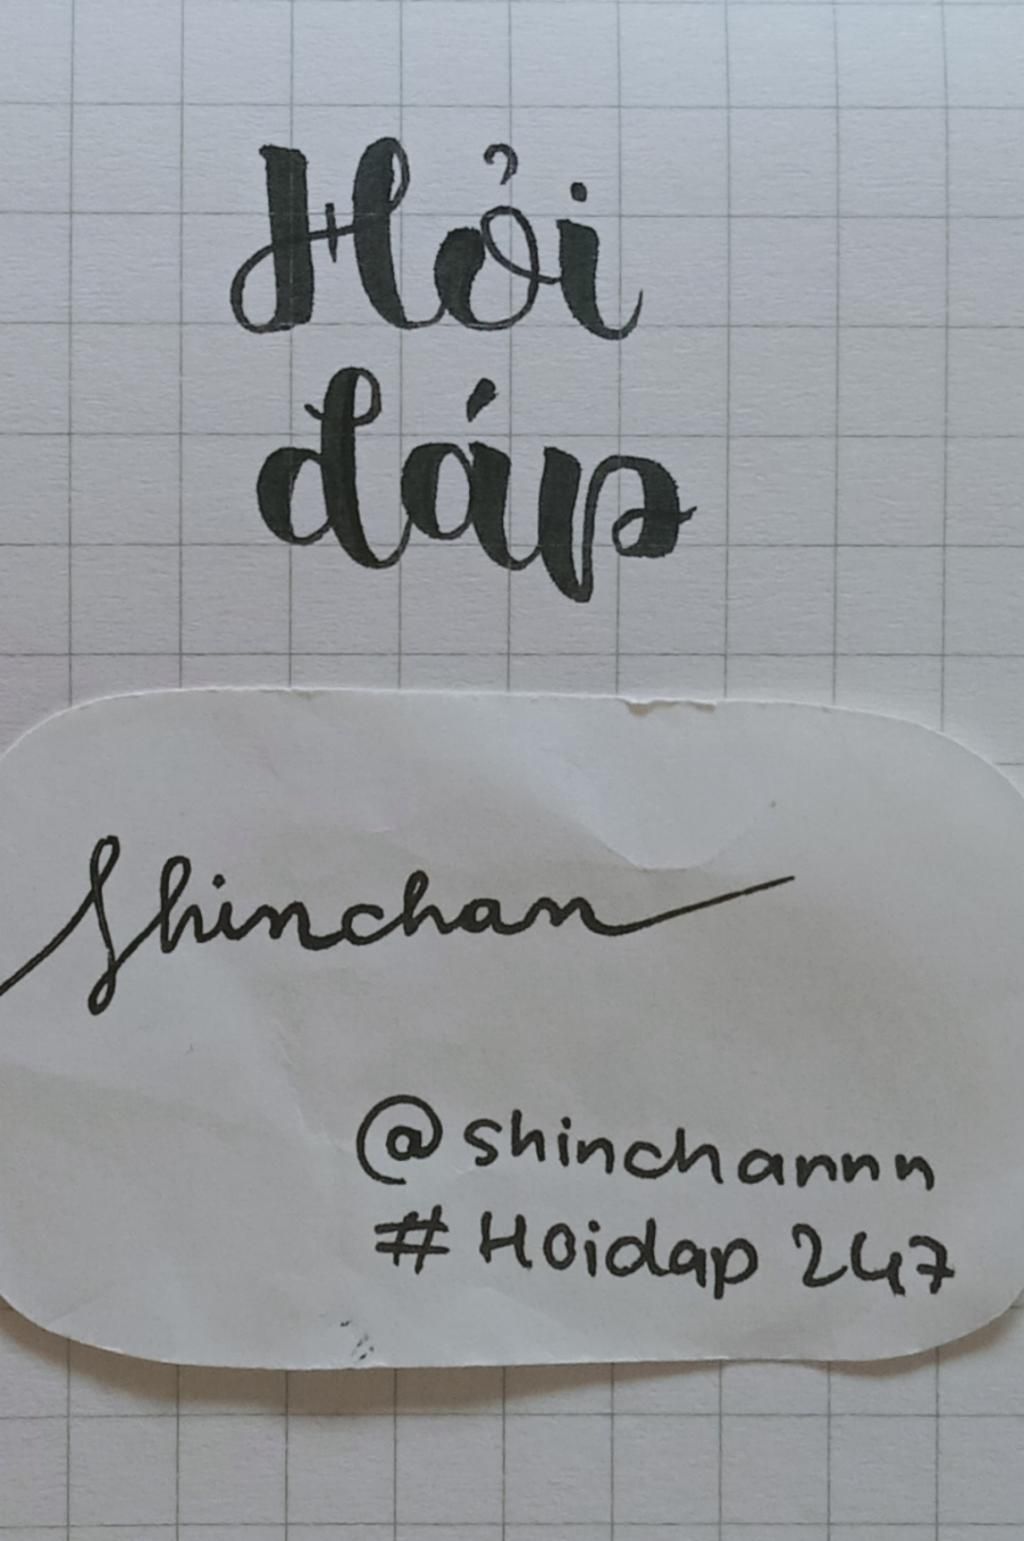 Hỏi
đáp
Shinchan
@shinchannn
#Hoidap 247